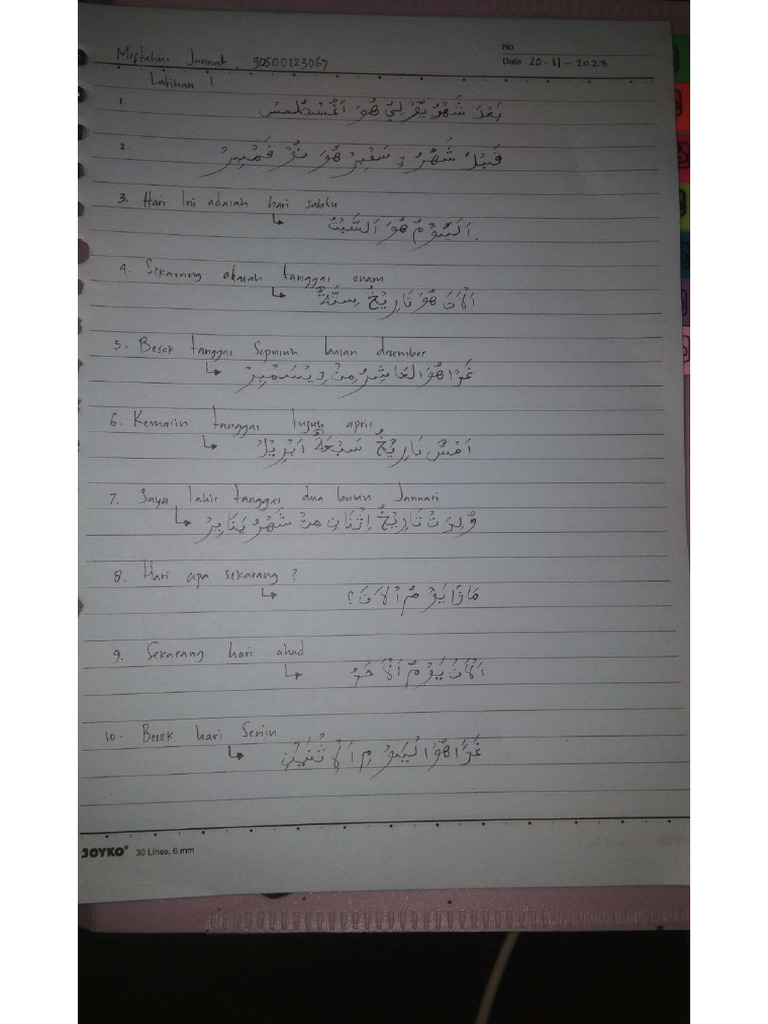 No
Miftahul Jannah, 90500123069
Date 20-11-2023
Latihan 1
1. بَعْدَ شَهْرُ يُوْلِيُ هُوَ اَغُسْطُسْ
2. قَبْلَ شَهْرُ دِسَمْبِرْ هُوَ نُوْفَمْبِرْ
3. Hari Ini adalah hari sabtu
↳ اَلْيَوْمُ هُوَ اَلسَّبْتُ.
4. Sekarang adalah tanggal enam
↳ اَلْآنَ هُوَ تَارِيْخٌ سِتَّةٌ
5. Besok tanggal sepuluh bulan desember
↳ غَدًا هُوَ العَاشِرُ مِنْ دِيْسَمْبِرْ
6. Kemarin tanggal tujuh april
↳ اَمْسِ تَارِيْخٌ سَبْعَةٌ اَبْرِيْلْ
7. Saya lahir tanggal dua bulan Januari
↳ وُلِدْتُ تَارِيْخٌ اِثْنَانِ مِنْ شَهْرُ يَنَايِرْ
8. Hari apa sekarang ?
↳ مَاذَا يَوْمُ الْآنَ ؟
9. Sekarang hari ahad
↳ اَلْآنَ يَوْمُ اَلْاَحَدُ
10. Besok hari Senin
↳ غَدًا هُوَ الْيَوْمِ اَلْاِثْنَيْنِ
JOYKO® 30 Lines, 6 mm